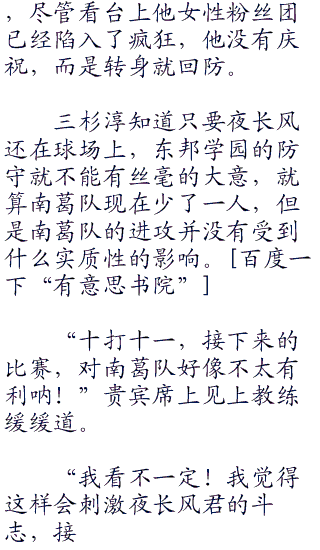 ，尽管看台上他女性粉丝团
已经陷入了疯狂，他没有庆
祝，而是转身就回防。
三杉淳知道只要夜长风
还在球场上，东邦学园的防
守就不能有丝毫的大意，就
算南葛队现在少了一人，但
是南葛队的进攻并没有受到
什么实质性的影响。[百度一
下“有意思书院”]
“十打十一，接下来的
比赛，对南葛队好像不太有
利呐！”贵宾席上见上教练
缓缓道。
“我看不一定！我觉得
这样会刺激夜长风君的斗
志，接